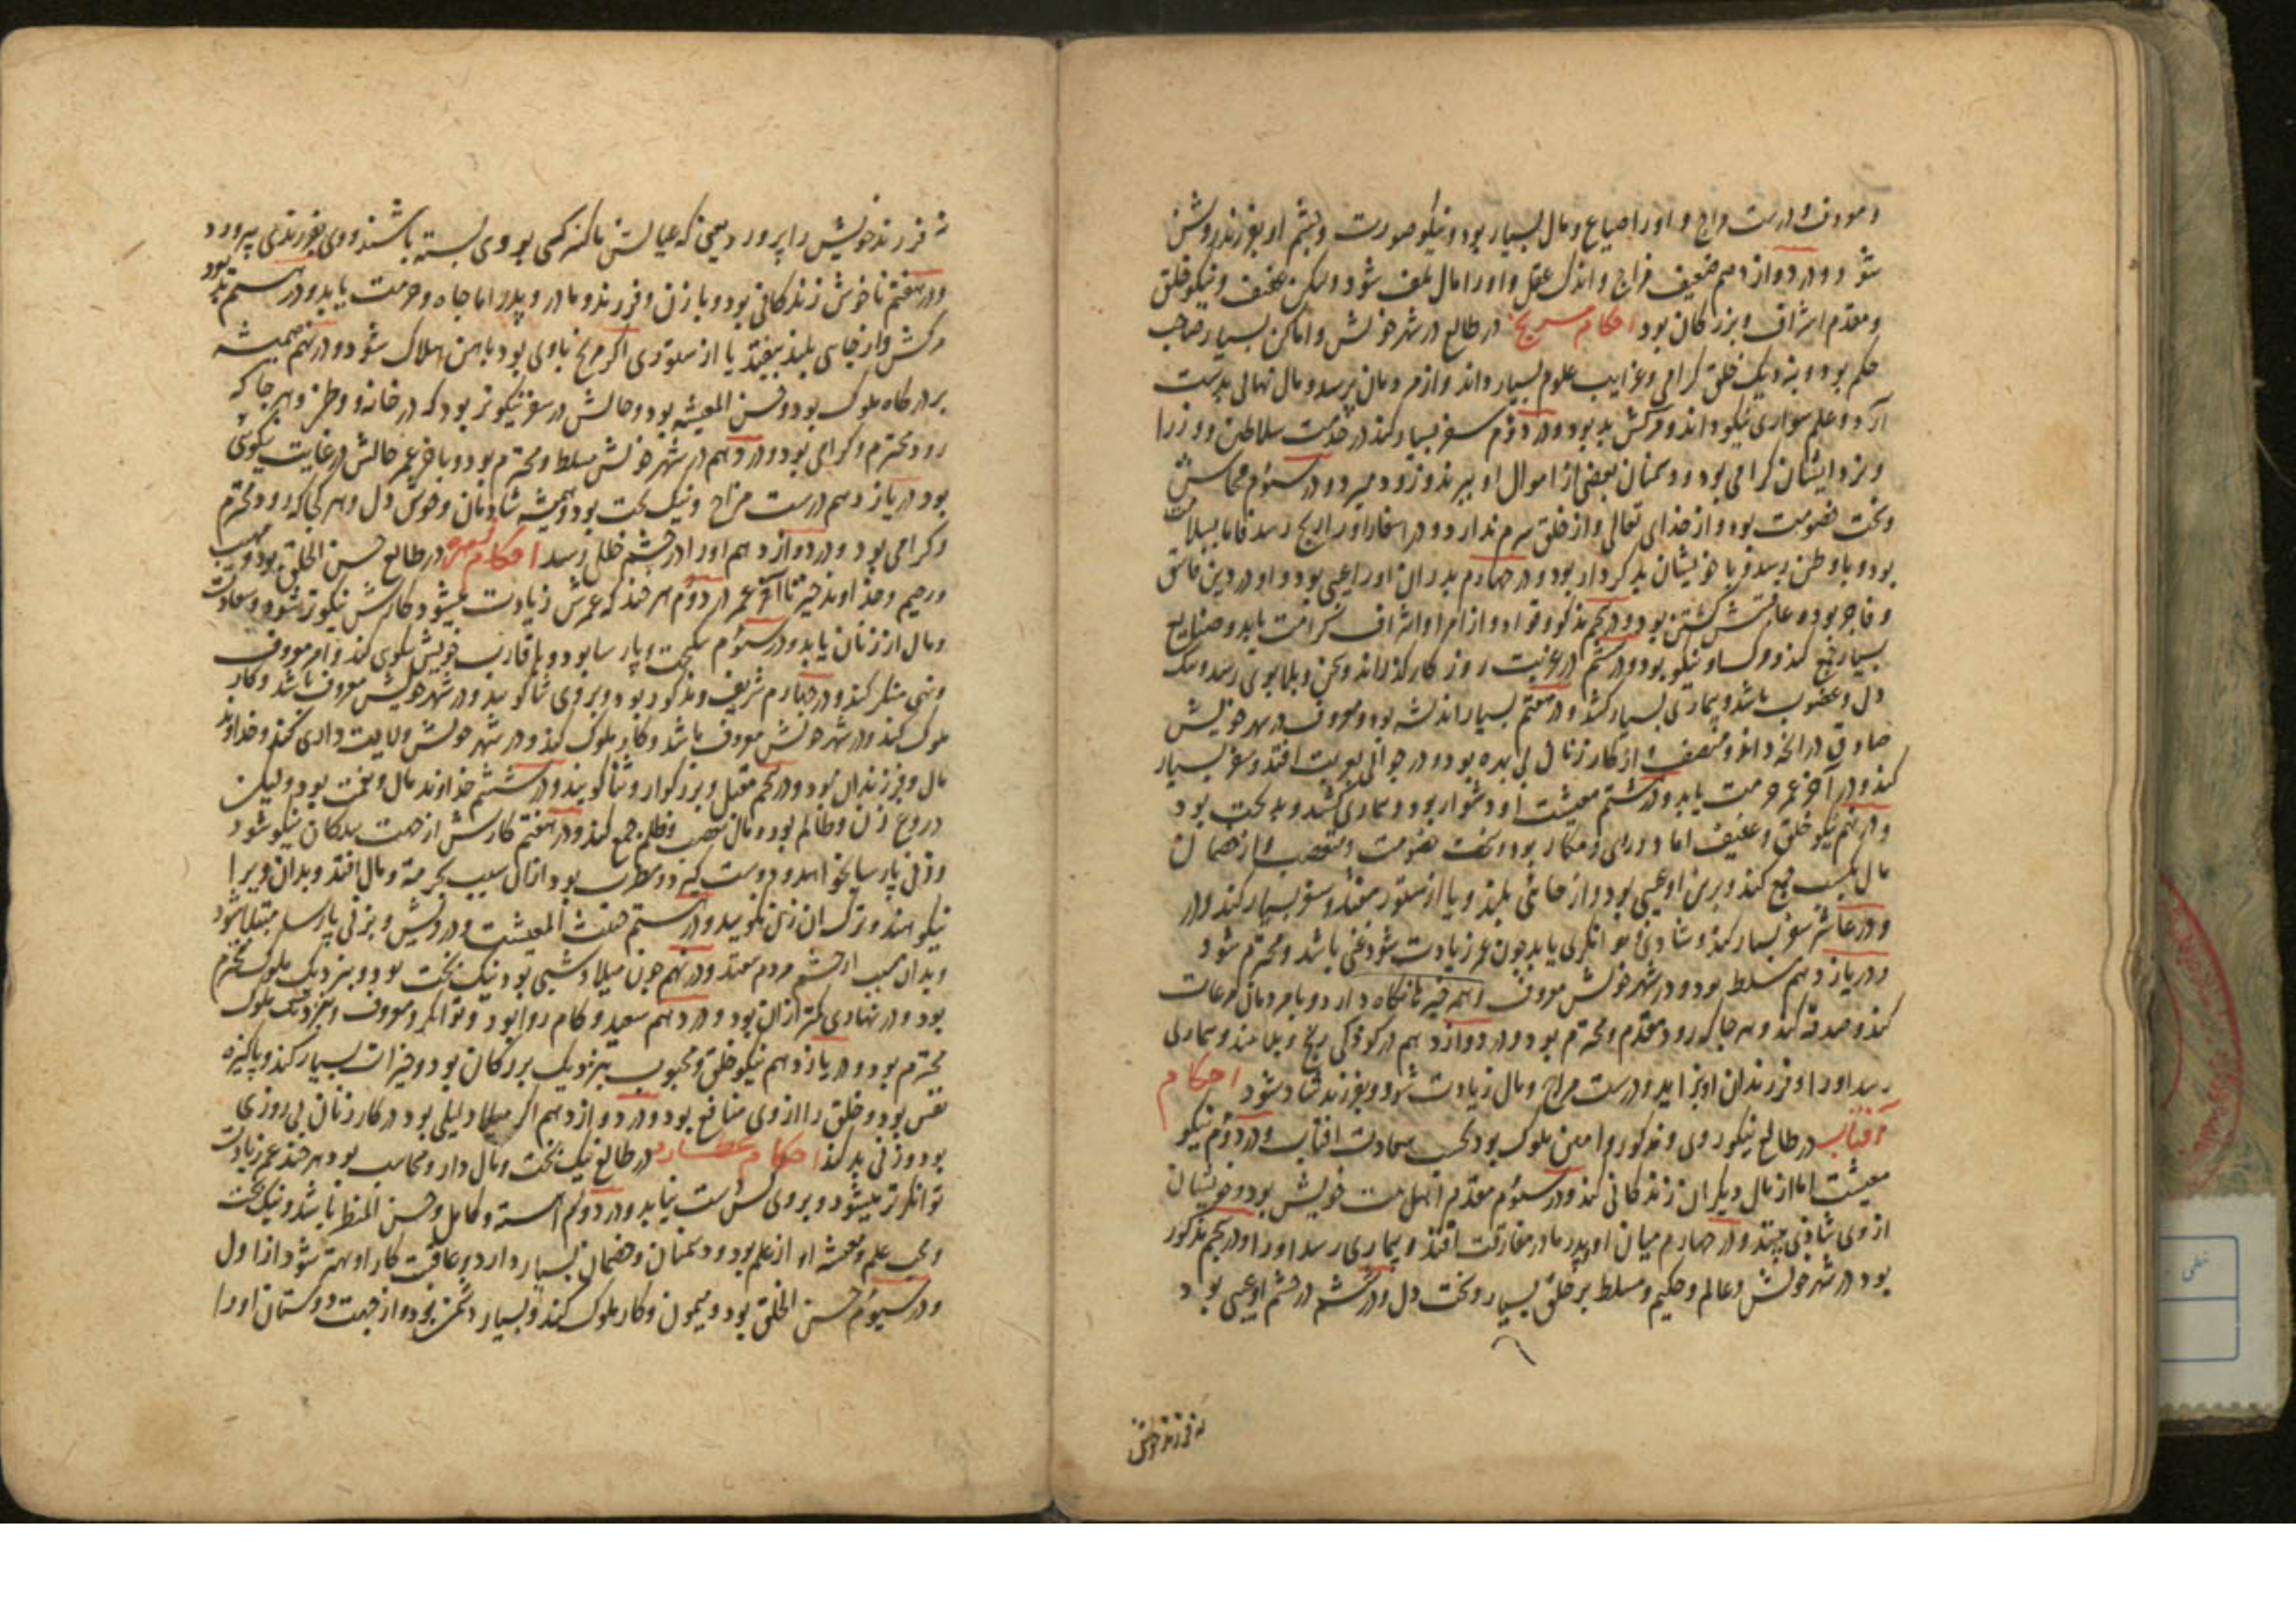 و معروف و درست مزاج و او را ضیاع و مال بسیار بود و نیکو صورت و چشم او بفرزند روشن
شود و در دوازدهم ضعیف مزاج و اندک عقل و او را مال تلف شود و لیکن عفیف و نیکو خلق
و مقدم اشراف و بزرگان بود احکام مریخ در طالع در شهر خویش و اماکن بسیار صاحب
حکم بود و بنزدیک خلق گرامی و غرایب علوم بسیار داند و از مردمان ترسد و مال نهانی بدست
آرد و علم سواری نیکو داند و مرگش بد بود و در دوم سفر بسیار کند در خدمت سلاطین و وزرا
و نزد ایشان گرامی بود و دشمنان بعضی از اموال او ببرند و زود میرد و در سیوم
و سخت خصومت بود و از خدای تعالی و از خلق شرم ندارد و در اسفار او را رنج رسد فاما بسلامت
بود و باوطن رسد و با خویشان بد کردار بود و در چهارم پدران او را عیبی بود و او در دین فاسق
و فاجر بود و عاقبتش کشتن بود و در پنجم مذکور و از امرا و اشراف کرامت یابد و صنایع
بسیار جمع کند و نیکو بود و در ششم در غربت روزگار گذراند و محن و بلا بوی رسد و تنگ
دل و غضوب باشد و بیماری بسیار کشد و در هفتم بسیار اندیشه بود و معروف در شهر خویش
صادق در آنچه داند و منصف و از کار زنان بی بهره بود و در جوانی بغربت افتد و سفر بسیار
کند و در آخر عمر حرمت یابد و در هشتم معیشت او دشوار بود و بیماری کشد و بدبخت بود
و در نهم نیکو خلق و عفیف اما دو رای و مکار بود و سخت خصومت و متعصب و از خصمان
مال بسیار جمع کند و بر تن او عیبی بود و از جائی بلند و یا از ستور بیفتد و سفر بسیار کند و در
و در عاشر سفر بسیار کند و شادی و توانگری یابد چون عمر زیادت شود غنی باشد و محترم شود
و در یازدهم مسلط بود و در شهر خویش معروف و اهم خیر نانگاه دارد و با مردمان مراعات
کند و صدقه کند و هر جا که رود مقدم و محترم بود و در دوازدهم در کودکی رنج و بلا بیند و بیماری
رسد او را و فرزندان او بزاید و درست مزاج و مال زیادت شود و بفرزند شاد شود احکام
آفتاب در طالع نیکو روی و مذکور و امین ملوک بود بحسب سعادت آفتاب و در دوم نیکو
معیشت اما از مال دیگران زندگانی کند و در سیوم مقدم اهل بیت خویش بود و خویشان
از وی شادی بینند و در چهارم میان او و پدر و مادر مفارقت افتد و بیماری رسد او را و در پنجم مذکور
بود در شهر خویش و عالم و حکیم و مسلط بر خلق بسیار و سخت دل و در ششم در چشم او عیبی بود
نه فرزند خویش
نه فرزند خویش را پرورد یعنی که عیالش ناکه کسی بر وی بسته باشند و وی بفرزندی پرورد
و در هفتم ناخوش زندگانی بود و با زن و فرزند و مادر و پدر اما جاه و حرمت یابد و در هشتم بد بود
مرگش و از جایی بلند بیفتد یا از ستوری اگر مریخ با وی بود بآهن هلاک شود و در نهم همیشه
بر درگاه ملوک بود و حسن المعیشه بود و حالش در سفر نیکوتر بود که در خانه و وطن و هر جا که
رود محترم و گرامی بود و در دهم در شهر خویش مسلط و محترم بود و باخر عمر حالش در غایت نیکوئی
بود در یازدهم درست مزاج و نیک بخت بود و همیشه شادمان و خوش دل و هر کجا که رود محترم
و گرامی بود و در دوازدهم او را در چشم خللی رسد احکام زهره در طالع حسن الخلق بود و مهیب
و رحیم و خداوند خیر تا آخر عمر در دوم هر چند که عمرش زیادت میشود کارش نیکوتر شود و سعادت
و مال از زنان یابد و در سیوم نیکبخت و پارسا بود و با اقارب خویش نیکوی کند و امر معروف
و نهی منکر کند و در چهارم شریف و مذکور بود و بر وی ثنا گویند و در شهر خویش معروف باشد و کار
ملوک کند و در شهر خویش معروف باشد و کار ملوک کند و در شهر خویش ولایت داری کند و خداوند
مال و فرزندان بود و در پنجم مقبل و بزرگوار و ثنا گویند و در ششم خداوند مال و نعمت بود ولیکن
دروغ زن و ظالم بود و مال غصب و ظلم جمع کند و در هفتم کارش از جهت نیکو شود
و زنی پارسا بخواهد و دوست گیرد و مطرب بود از آن سبب بحرمت و مال افتد و بدان ویرا
نیکوهند و ترک آن زن نگویند و در هشتم خبث المعیشت و درویش و بزنی پارسا مبتلا شود
و بدان سبب از چشم مردم بیفتد و در نهم چون میلاد شبی بود نیک بخت بود و بنزدیک ملوک محترم
بود و در نهاری کمتر از آن بود و در دهم سعید و کام روا بود و توانگر و معروف و بنزدیک ملوک
محترم بود و در یازدهم نیکو خلق و محبوب بنزدیک بزرگان بود و خیرات بسیار کند و پاکیزه
نفس بود و خلق را از وی منافع بود و در دوازدهم اگر میلاد لیلی بود در کار زنان بی روزی
بود و زنی بد کند احکام عطارد در طالع نیک بخت و مال دار و محاسب بود هر چند عمر زیادت
توانگرتر میشود و بر وی شکست نیاید و در دوم آهسته و کامل و حسن المنظر باشد و نیک بخت
و محب علم و معیشه او از علم بود و دشمنان و خصمان بسیار دارد و عاقبت کار او بهتر شود از اول
و در سیوم حسن الخلق بود و میمون و کار ملوک کند و بسیار دشمن بود و از جهت دوستان او را
خطی